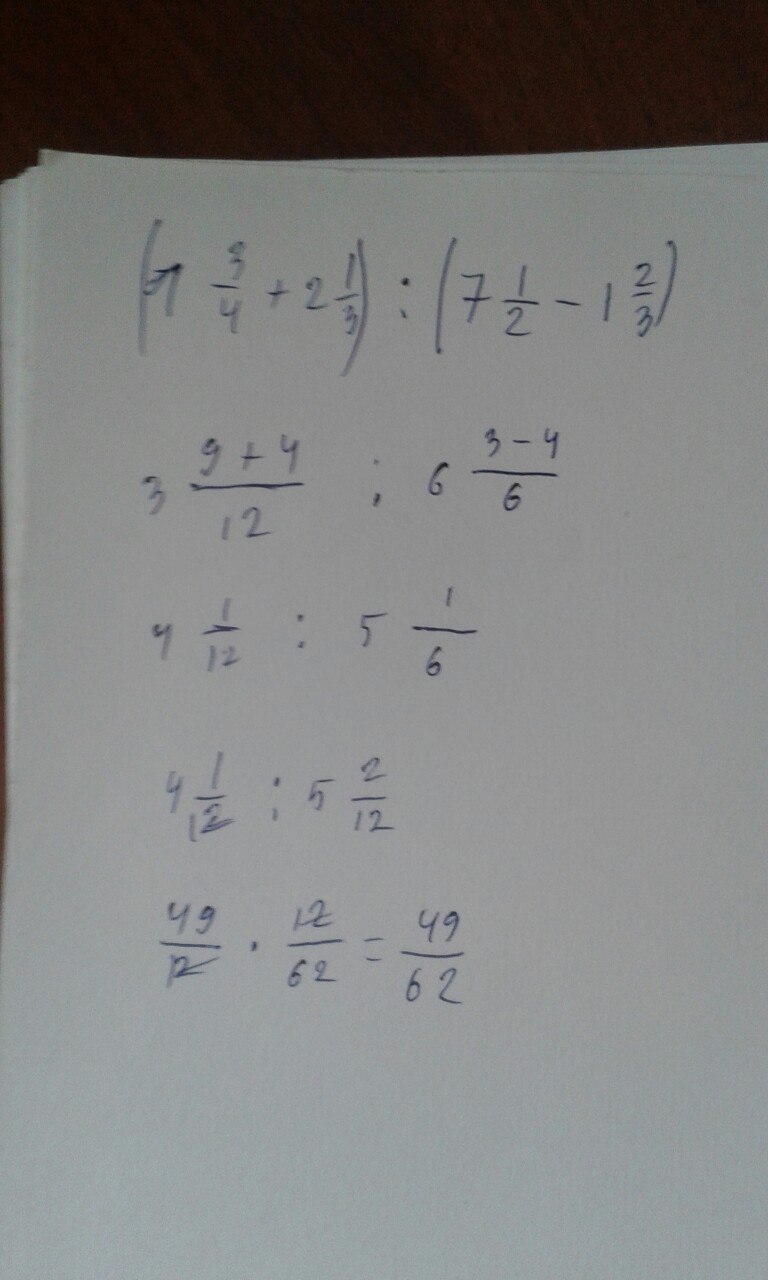 (1 3/4 + 2 1/3) : (7 1/2 - 1 2/3)
3 (9 + 4)/12 : 6 (3 - 4)/6
4 1/12 : 5 1/6
4 1/12 : 5 2/12
49/12 · 12/62 = 49/62